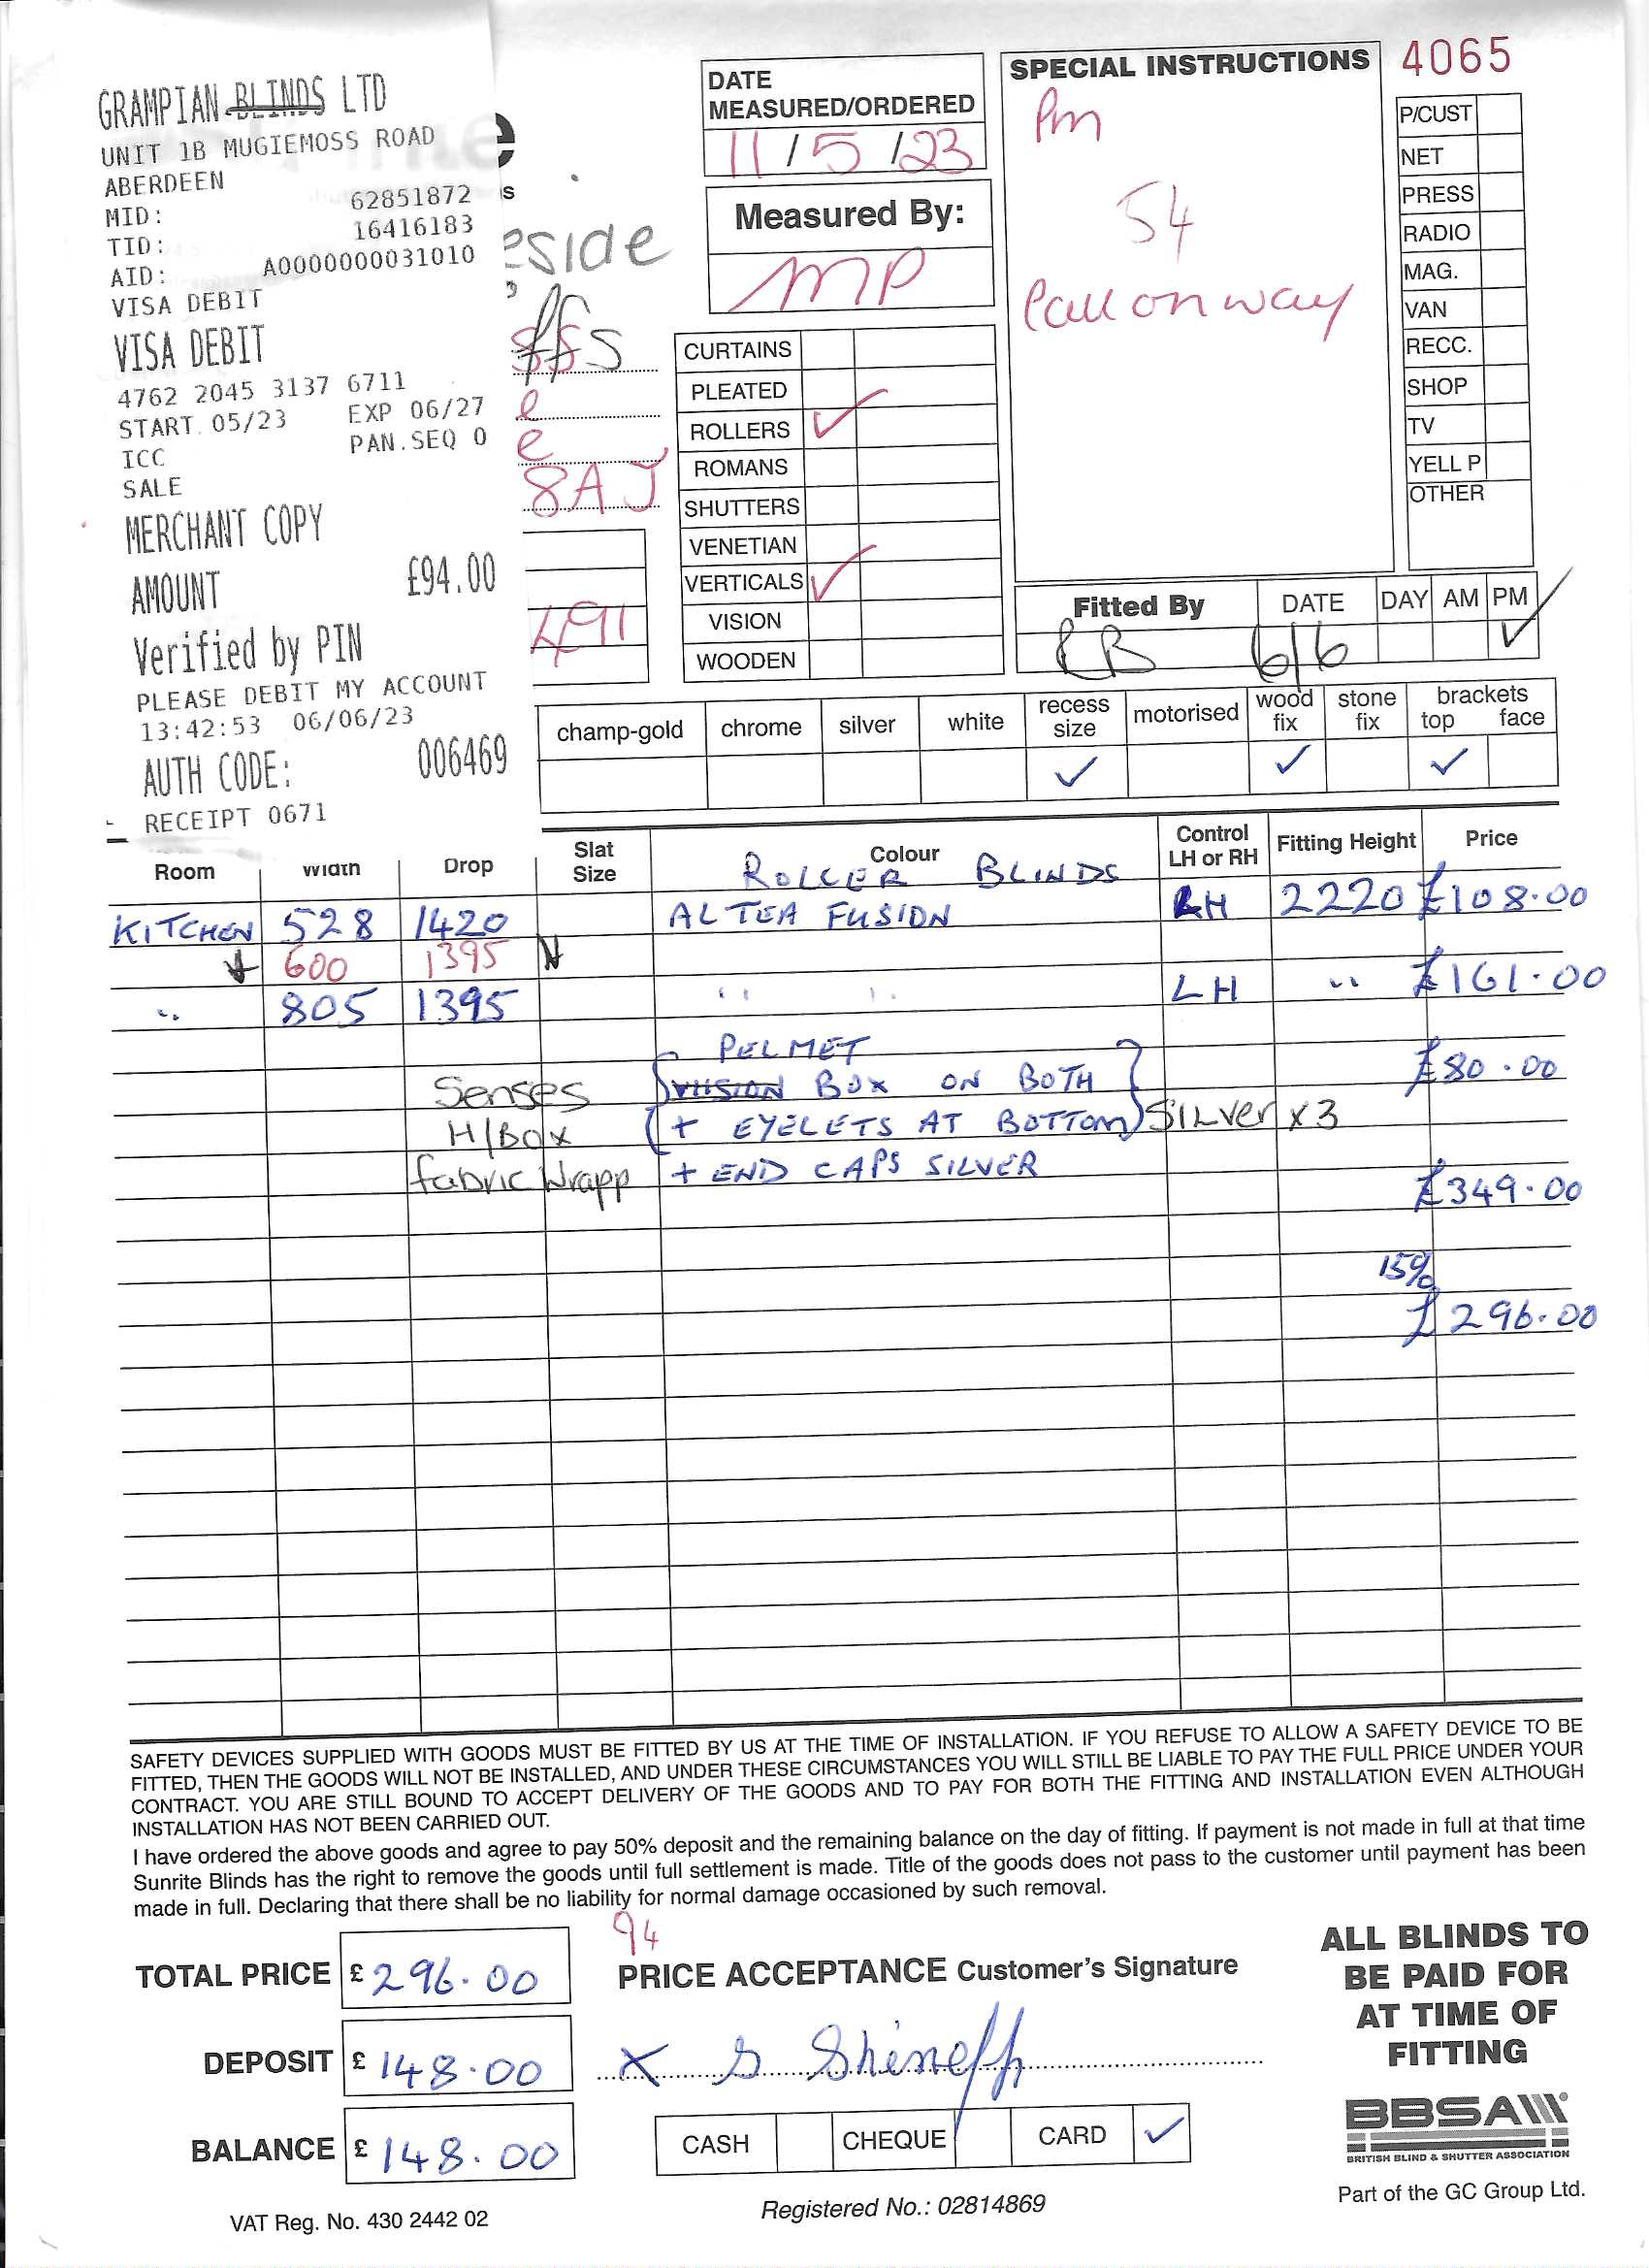 GRAMPIAN BLINDS LTD
UNIT 1B MUGIEMOSS ROAD
ABERDEEN
MID: 62851872
TID: 16416183
AID: A0000000031010
VISA DEBIT
VISA DEBIT
4762 2045 3137 6711
START 05/23 EXP 06/27
ICC PAN.SEQ 0
SALE
MERCHANT COPY
AMOUNT £94.00
Verified by PIN
PLEASE DEBIT MY ACCOUNT
13:42:53 06/06/23
AUTH CODE: 006469
RECEIPT 0671
e
s
eside
ffs
e
e
8AJ
491
DATE
MEASURED/ORDERED
11/5/23
Measured By:
MP
CURTAINS
PLEATED
ROLLERS ✓
ROMANS
SHUTTERS
VENETIAN
VERTICALS ✓
VISION
WOODEN
SPECIAL INSTRUCTIONS
Pm
54
Call on way
4065
P/CUST
NET
PRESS
RADIO
MAG.
VAN
RECC.
SHOP
TV
YELL P
OTHER
Fitted By DATE DAY AM PM
6/6 ✓
champ-gold chrome silver white recess size motorised wood fix stone fix brackets top face
✓ ✓ ✓
Room Width Drop Slat Size Colour Control LH or RH Fitting Height Price
ROLLER BLINDS
KITCHEN 528 1420 ALTEA FUSION LH 2220 £108.00
600 1395 N
" 805 1395 " " LH " £161.00
PELMET
Senses VISION BOX ON BOTH £80.00
H/Box + EYELETS AT BOTTOM SILver x 3
fabric Wrapp + END CAPS SILVER £349.00
15%
£296.00
SAFETY DEVICES SUPPLIED WITH GOODS MUST BE FITTED BY US AT THE TIME OF INSTALLATION. IF YOU REFUSE TO ALLOW A SAFETY DEVICE TO BE
FITTED, THEN THE GOODS WILL NOT BE INSTALLED, AND UNDER THESE CIRCUMSTANCES YOU WILL STILL BE LIABLE TO PAY THE FULL PRICE UNDER YOUR
CONTRACT. YOU ARE STILL BOUND TO ACCEPT DELIVERY OF THE GOODS AND TO PAY FOR BOTH THE FITTING AND INSTALLATION EVEN ALTHOUGH
INSTALLATION HAS NOT BEEN CARRIED OUT.
I have ordered the above goods and agree to pay 50% deposit and the remaining balance on the day of fitting. If payment is not made in full at that time
Sunrite Blinds has the right to remove the goods until full settlement is made. Title of the goods does not pass to the customer until payment has been
made in full. Declaring that there shall be no liability for normal damage occasioned by such removal.
94
TOTAL PRICE £ 296.00
PRICE ACCEPTANCE Customer's Signature
DEPOSIT £ 148.00
x S Shineff
BALANCE £ 148.00
CASH CHEQUE CARD ✓
VAT Reg. No. 430 2442 02
Registered No.: 02814869
ALL BLINDS TO
BE PAID FOR
AT TIME OF
FITTING
BBSA
BRITISH BLIND & SHUTTER ASSOCIATION
Part of the GC Group Ltd.